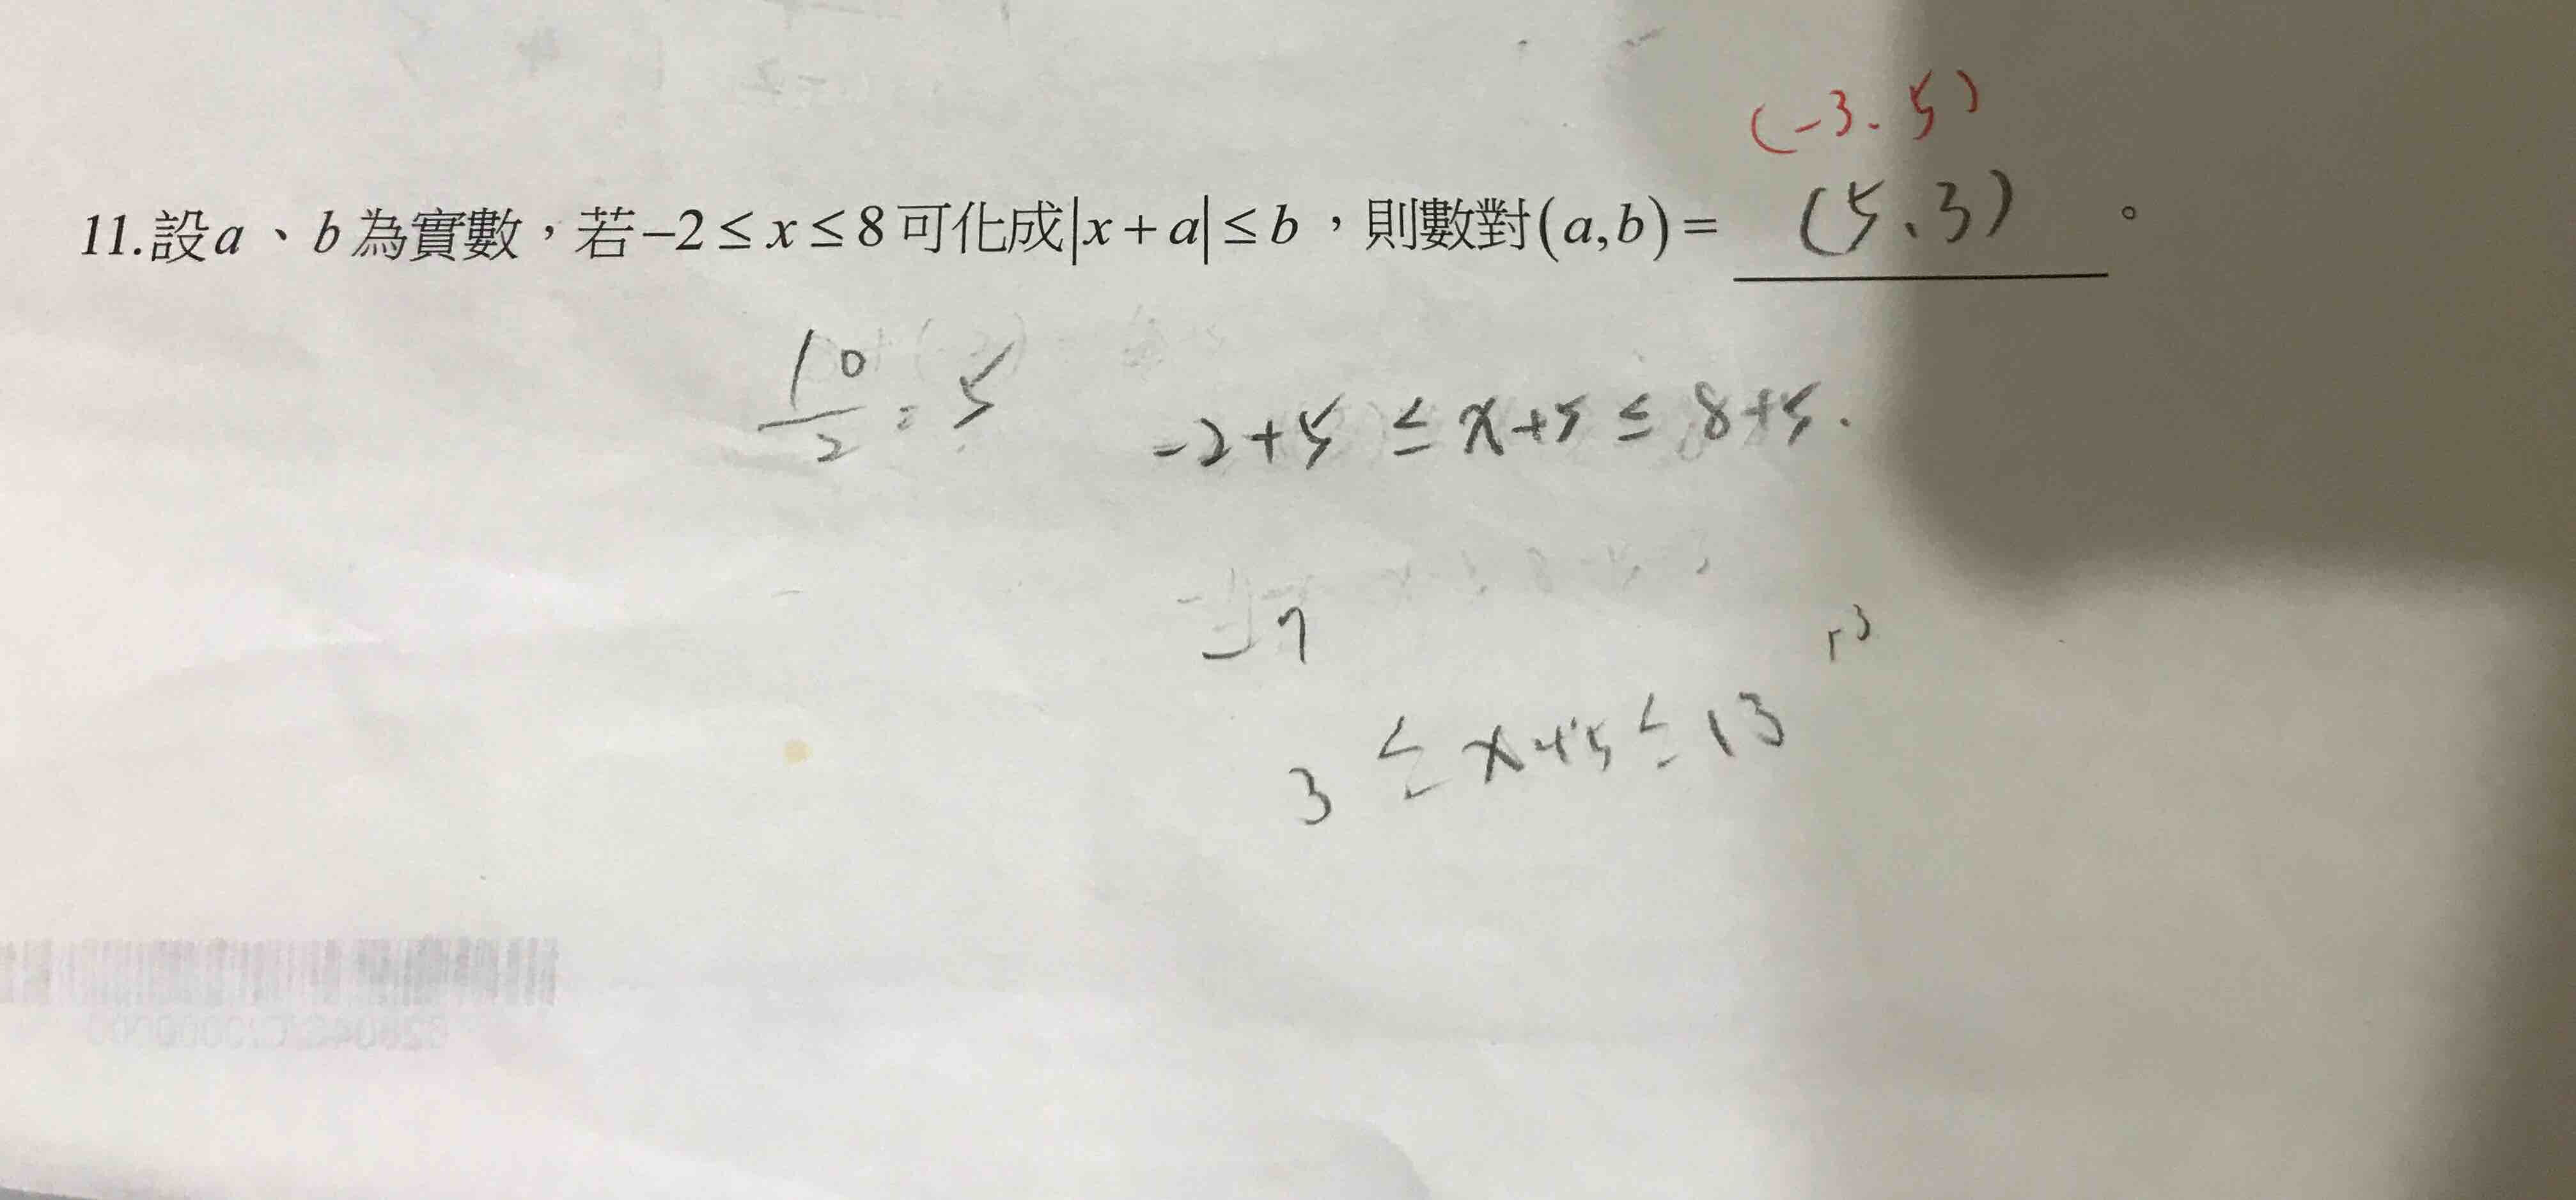 (-3.5)
11.設a、b為實數，若-2≤x≤8可化成|x+a|≤b，則數對(a,b)= (5、3)。
10/2=5 -2+5≤x+5≤8+5.
-7 13
3≤x+5≤13